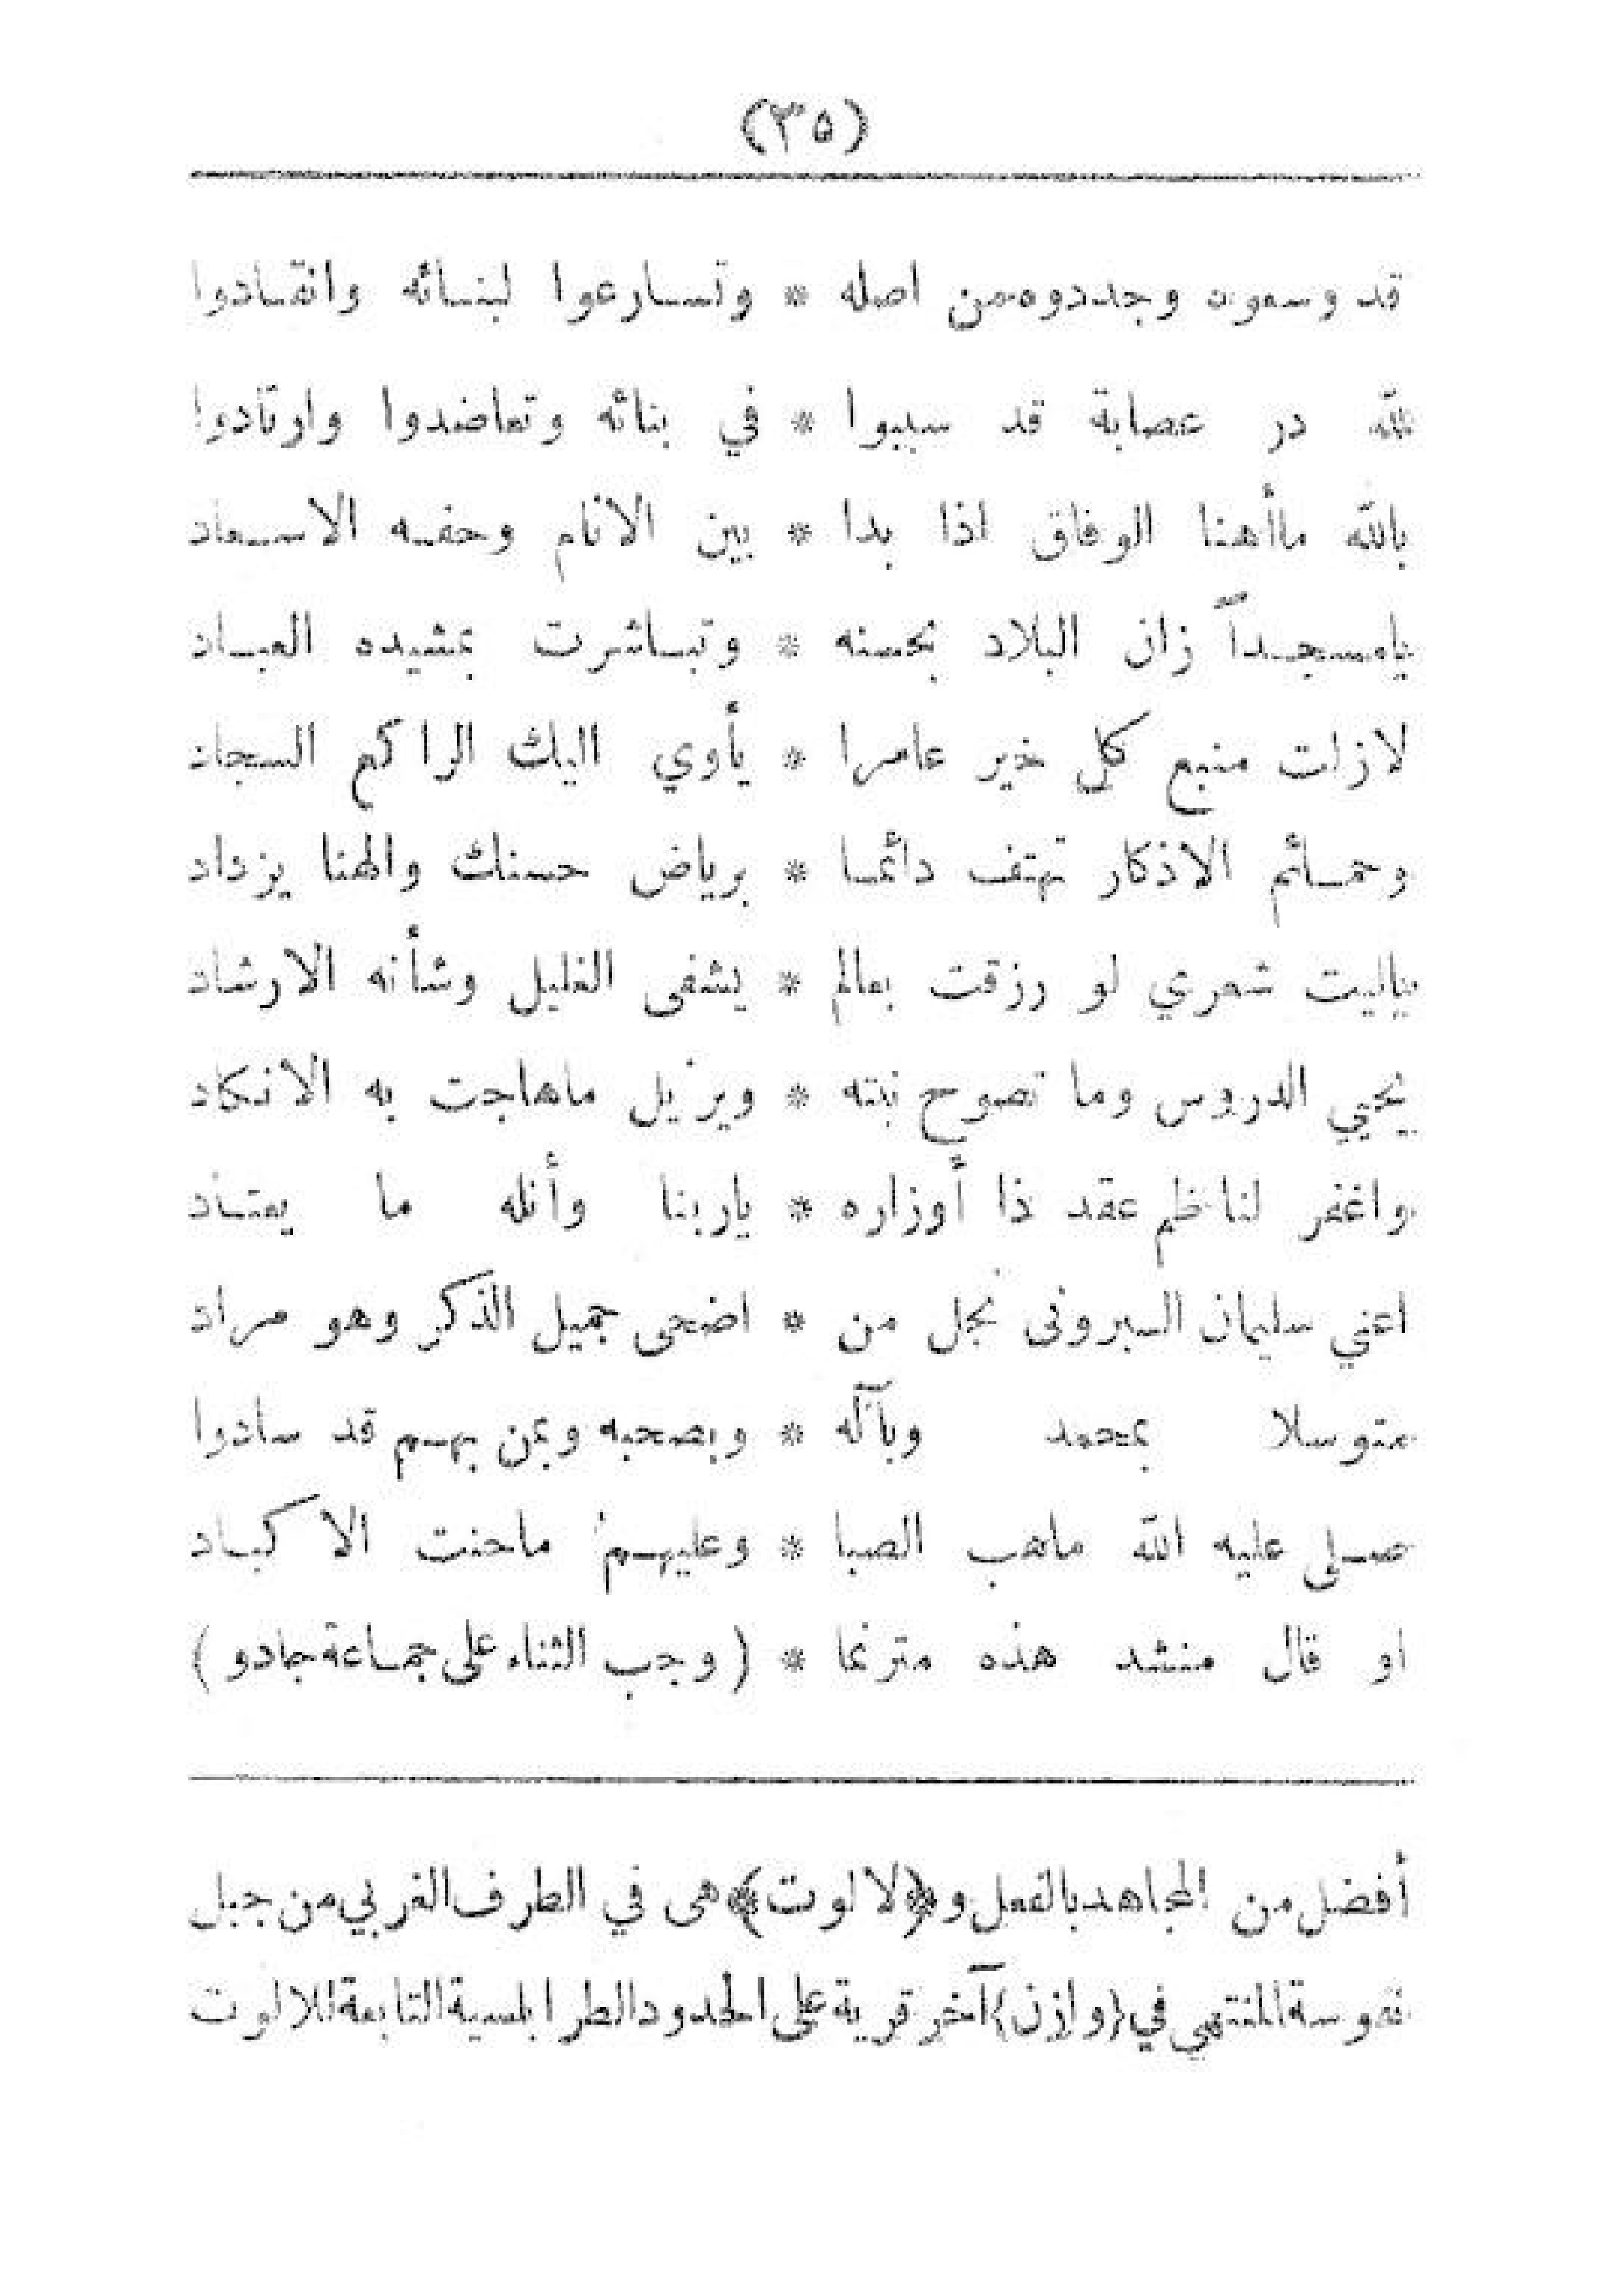 (٣٥)
قد وسعوه وجددوه من اصله * وتسارعوا لبنائه وانقادوا
لله در عصابة قد سببوا * في بنائه وتعاضدوا وارتادوا
بالله ماأهنا الوفاق اذا بدا * بين الانام وحفه الاسعاد
يامسجداً زان البلاد بحسنه * وتباشرت بمشيده العباد
لازلت منبع كل خير عامرا * يأوي اليك الراكع السجاد
وحمائم الاذكار تهتف دائما * برياض حسنك والهنا يزداد
ياليت شعري لو رزقت بعالم * يشفى الغليل وشأنه الارشاد
يحيي الدروس وما تصوح نبته * ويزيل ماهاجت به الانكاد
واغفر لناظم عقد ذا أوزاره * ياربنا وأنله ما يعتاد
اعني سليمان البرونى نجل من * اضحى جميل الذكر وهو مراد
متوسلا بمحمد وبآله * وبصحبه وبمن بهم قد سادوا
صلى عليه الله ماهب الصبا * وعليهم ماحنت الاكباد
او قال منشد هذه مترنما * (وجب الثناء على جماعة جادو)
أفضل من المجاهد بالفعل و﴿لالوت﴾ هى في الطرف الغربي من جبل
نفوسة المنتهي في {وازن} آخر قرية على الحدود الطرابلسية التابعة للالوت